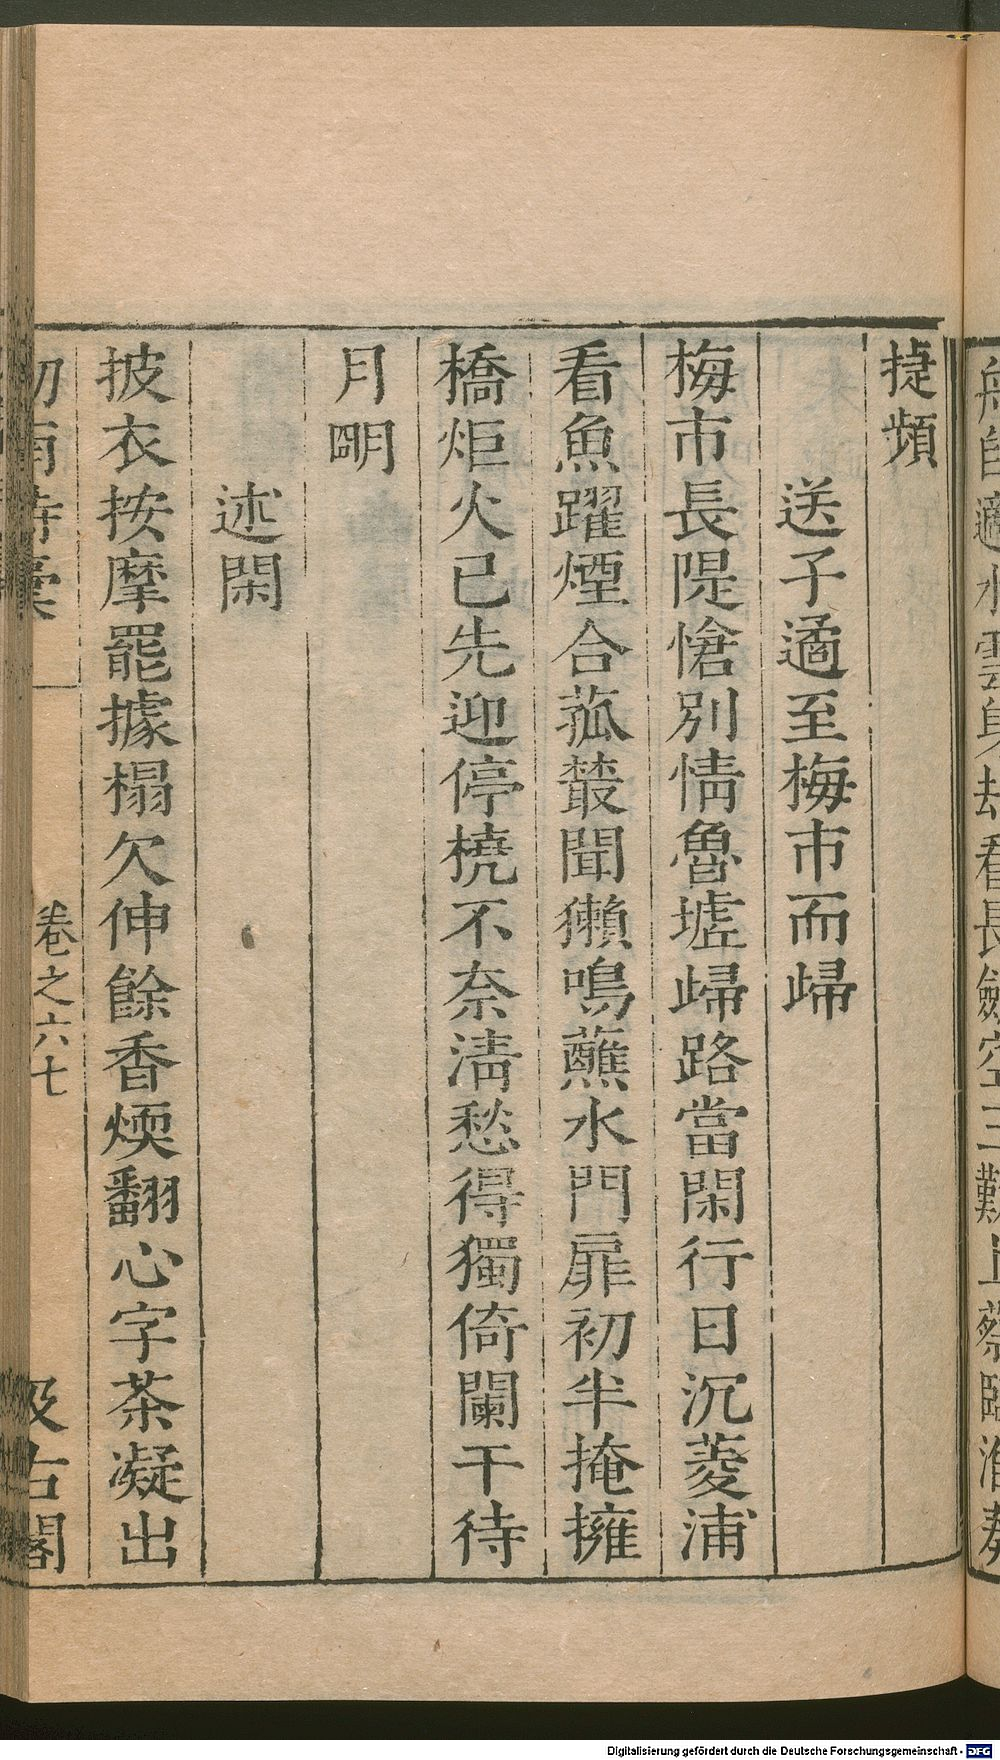 捷頻
送子遹至梅市而歸
梅市長隄愴別情魯墟歸路當閑行日沉菱浦
看魚躍煙合菰叢聞獺鳴蘸水門扉初半掩擁
橋炬火已先迎停橈不奈淸愁得獨倚闌干待
月明
述閑
披衣按摩罷據榻欠伸餘香煗翻心字茶凝出
卷之六七
汲古閣
Digitalisierung gefördert durch die Deutsche Forschungsgemeinschaft - DFG